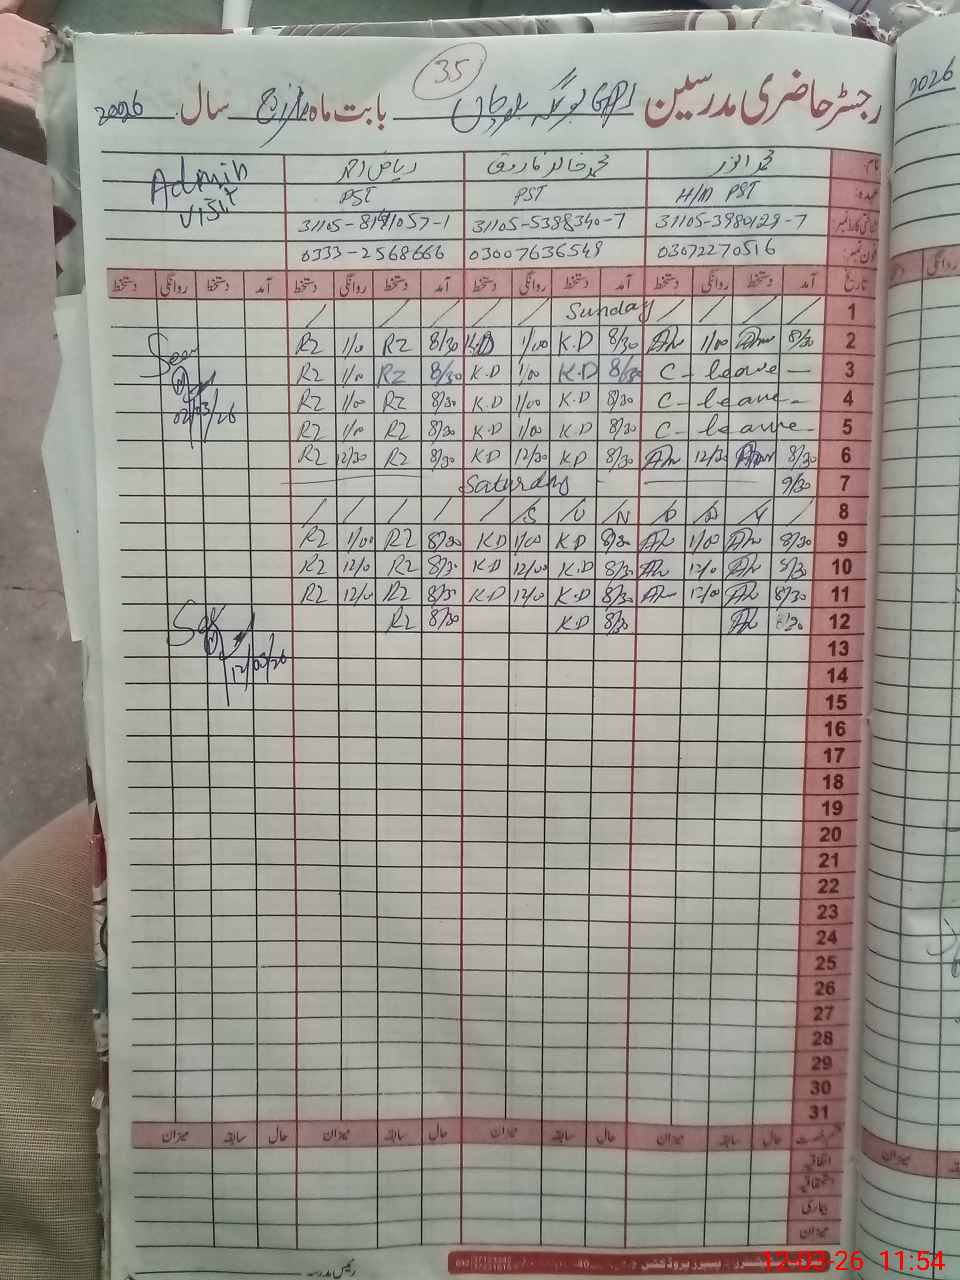 35
رجسٹر حاضری مدرسین GPS بابت ماہ مارچ سال 2026
نام: محمد انور محمد خالد فاروق ریاض احمد Admin
عہدہ: H/M PST PST PST Visit
شناختی کارڈ نمبر: 31105-3980129-7 31105-5388340-7
فون نمبر: 03072270516 03007636549 0333-2568666
تاریخ آمد دستخط روانگی دستخط آمد دستخط روانگی دستخط آمد دستخط روانگی دستخط آمد دستخط روانگی دستخط
1 Sunday
2 8/30 1/00 8/30 K.D 1/00 K.D 8/30 RZ 1/00 RZ Seen
3 C-leave 8/30 K.D 1/00 K.D 8/30 RZ 1/00 RZ
4 C-leave 8/30 K.D 1/00 K.D 8/30 RZ 1/00 RZ 02/03/26
5 C-leave 8/30 K.D 1/00 K.D 8/30 RZ 1/00 RZ
6 8/30 12/30 8/30 K.D 12/30 K.D 8/30 RZ 12/30 RZ
7 9/30 Saturday
8 S U N D A Y
9 8/30 1/00 8/30 K.D 1/00 K.D 8/30 RZ 1/00 RZ
10 8/30 12/0 8/30 K.D 12/00 K.D 8/30 RZ 12/0 RZ
11 8/30 12/00 8/30 K.D 12/0 K.D 8/30 RZ 12/0 RZ
12 8/30 8/30 K.D 8/30 RZ
13 12/03/26
14
15
16
17
18
19
20
21
22
23
24
25
26
27
28
29
30
31
حال سابقہ میزان حال سابقہ میزان حال سابقہ میزان حال سابقہ میزان
اتفاقیہ
استحقاقیہ
بیماری
میزان
رئیس مدرسہ
12-03-26 11:54
2026
روانگی
میزان